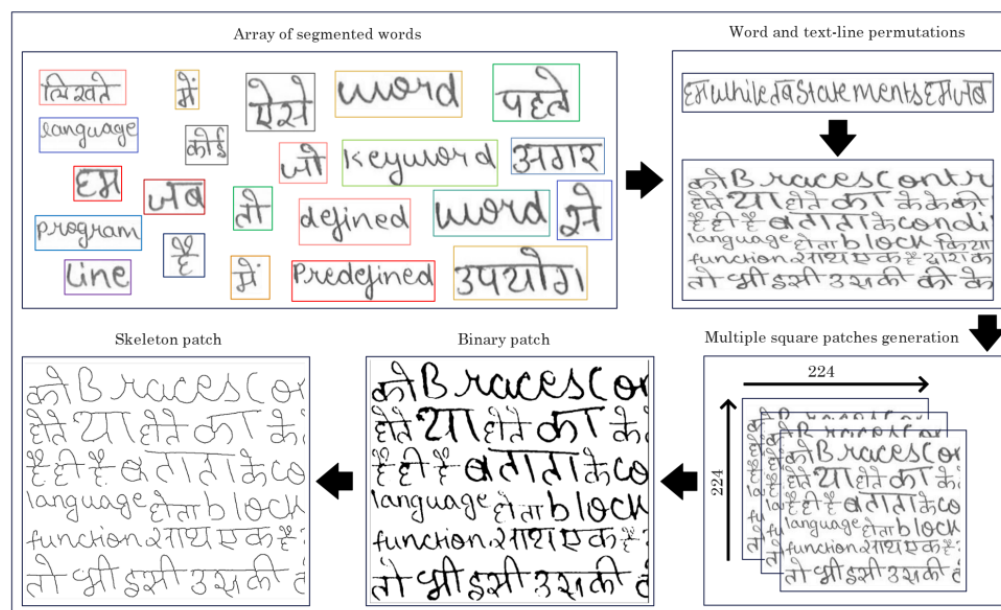 Array of segmented words
लिखते में ऐसे word पहले
language कोई जो keyword अगर
हम जब तो defined word से
program है
line में Predefined उपयोग
Word and text-line permutations
हमwhileतबStatementsहमजब
को Braces Contr
होते या होते का के के की
है ही है ब ता ता के condi
language होता block किया
function साथ एक है
तो भी इसी उसकी की के
Skeleton patch
को Braces Con
होते या होते का के
है ही है ब ता ता के co
language होता block
function साथ एक है
तो भी इसी उसकी
Binary patch
को Braces Con
होते या होते का के
है ही है ब ता ता के co
language होता block
function साथ एक है
तो भी इसी उसकी
Multiple square patches generation
224
224
को Braces Con
होते या होते का के
है ही है ब ता ता के co
language होता block
function साथ एक है
तो भी इसी उसकी